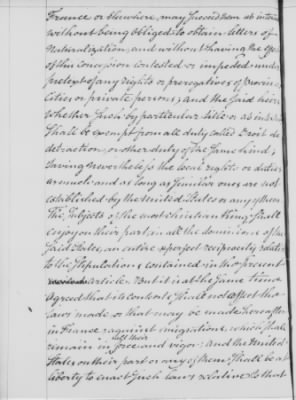 France or elsewhere, may succeed them ab intes
without being obliged to obtain letters of
Naturalization, and without having the effe
of this concession contested or impeded unde
pretext of any rights or prerogatives of provinces
Cities or private persons; and the said heirs
whether such by particular title or ab intes
Shall be exempt from all duty called Droit de
detraction, or other duty of the same kind;
saving nevertheless the local rights or duties
as much and as long as similar ones are not
established by the United States or any of them
The subjects of the most christian King shall
enjoy on their part, in all the dominions of the
Said States, an entire & perfect reciprocity relative
to the Stipulations contained in the present
article. But it is at the same time
Agreed that its contents shall not affect the
laws made or that may be made hereafter
in France against emigrations, which shall
remain in all their force and vigor: and the United
States on their part or any of them, shall be at
liberty to enact such laws relative to that